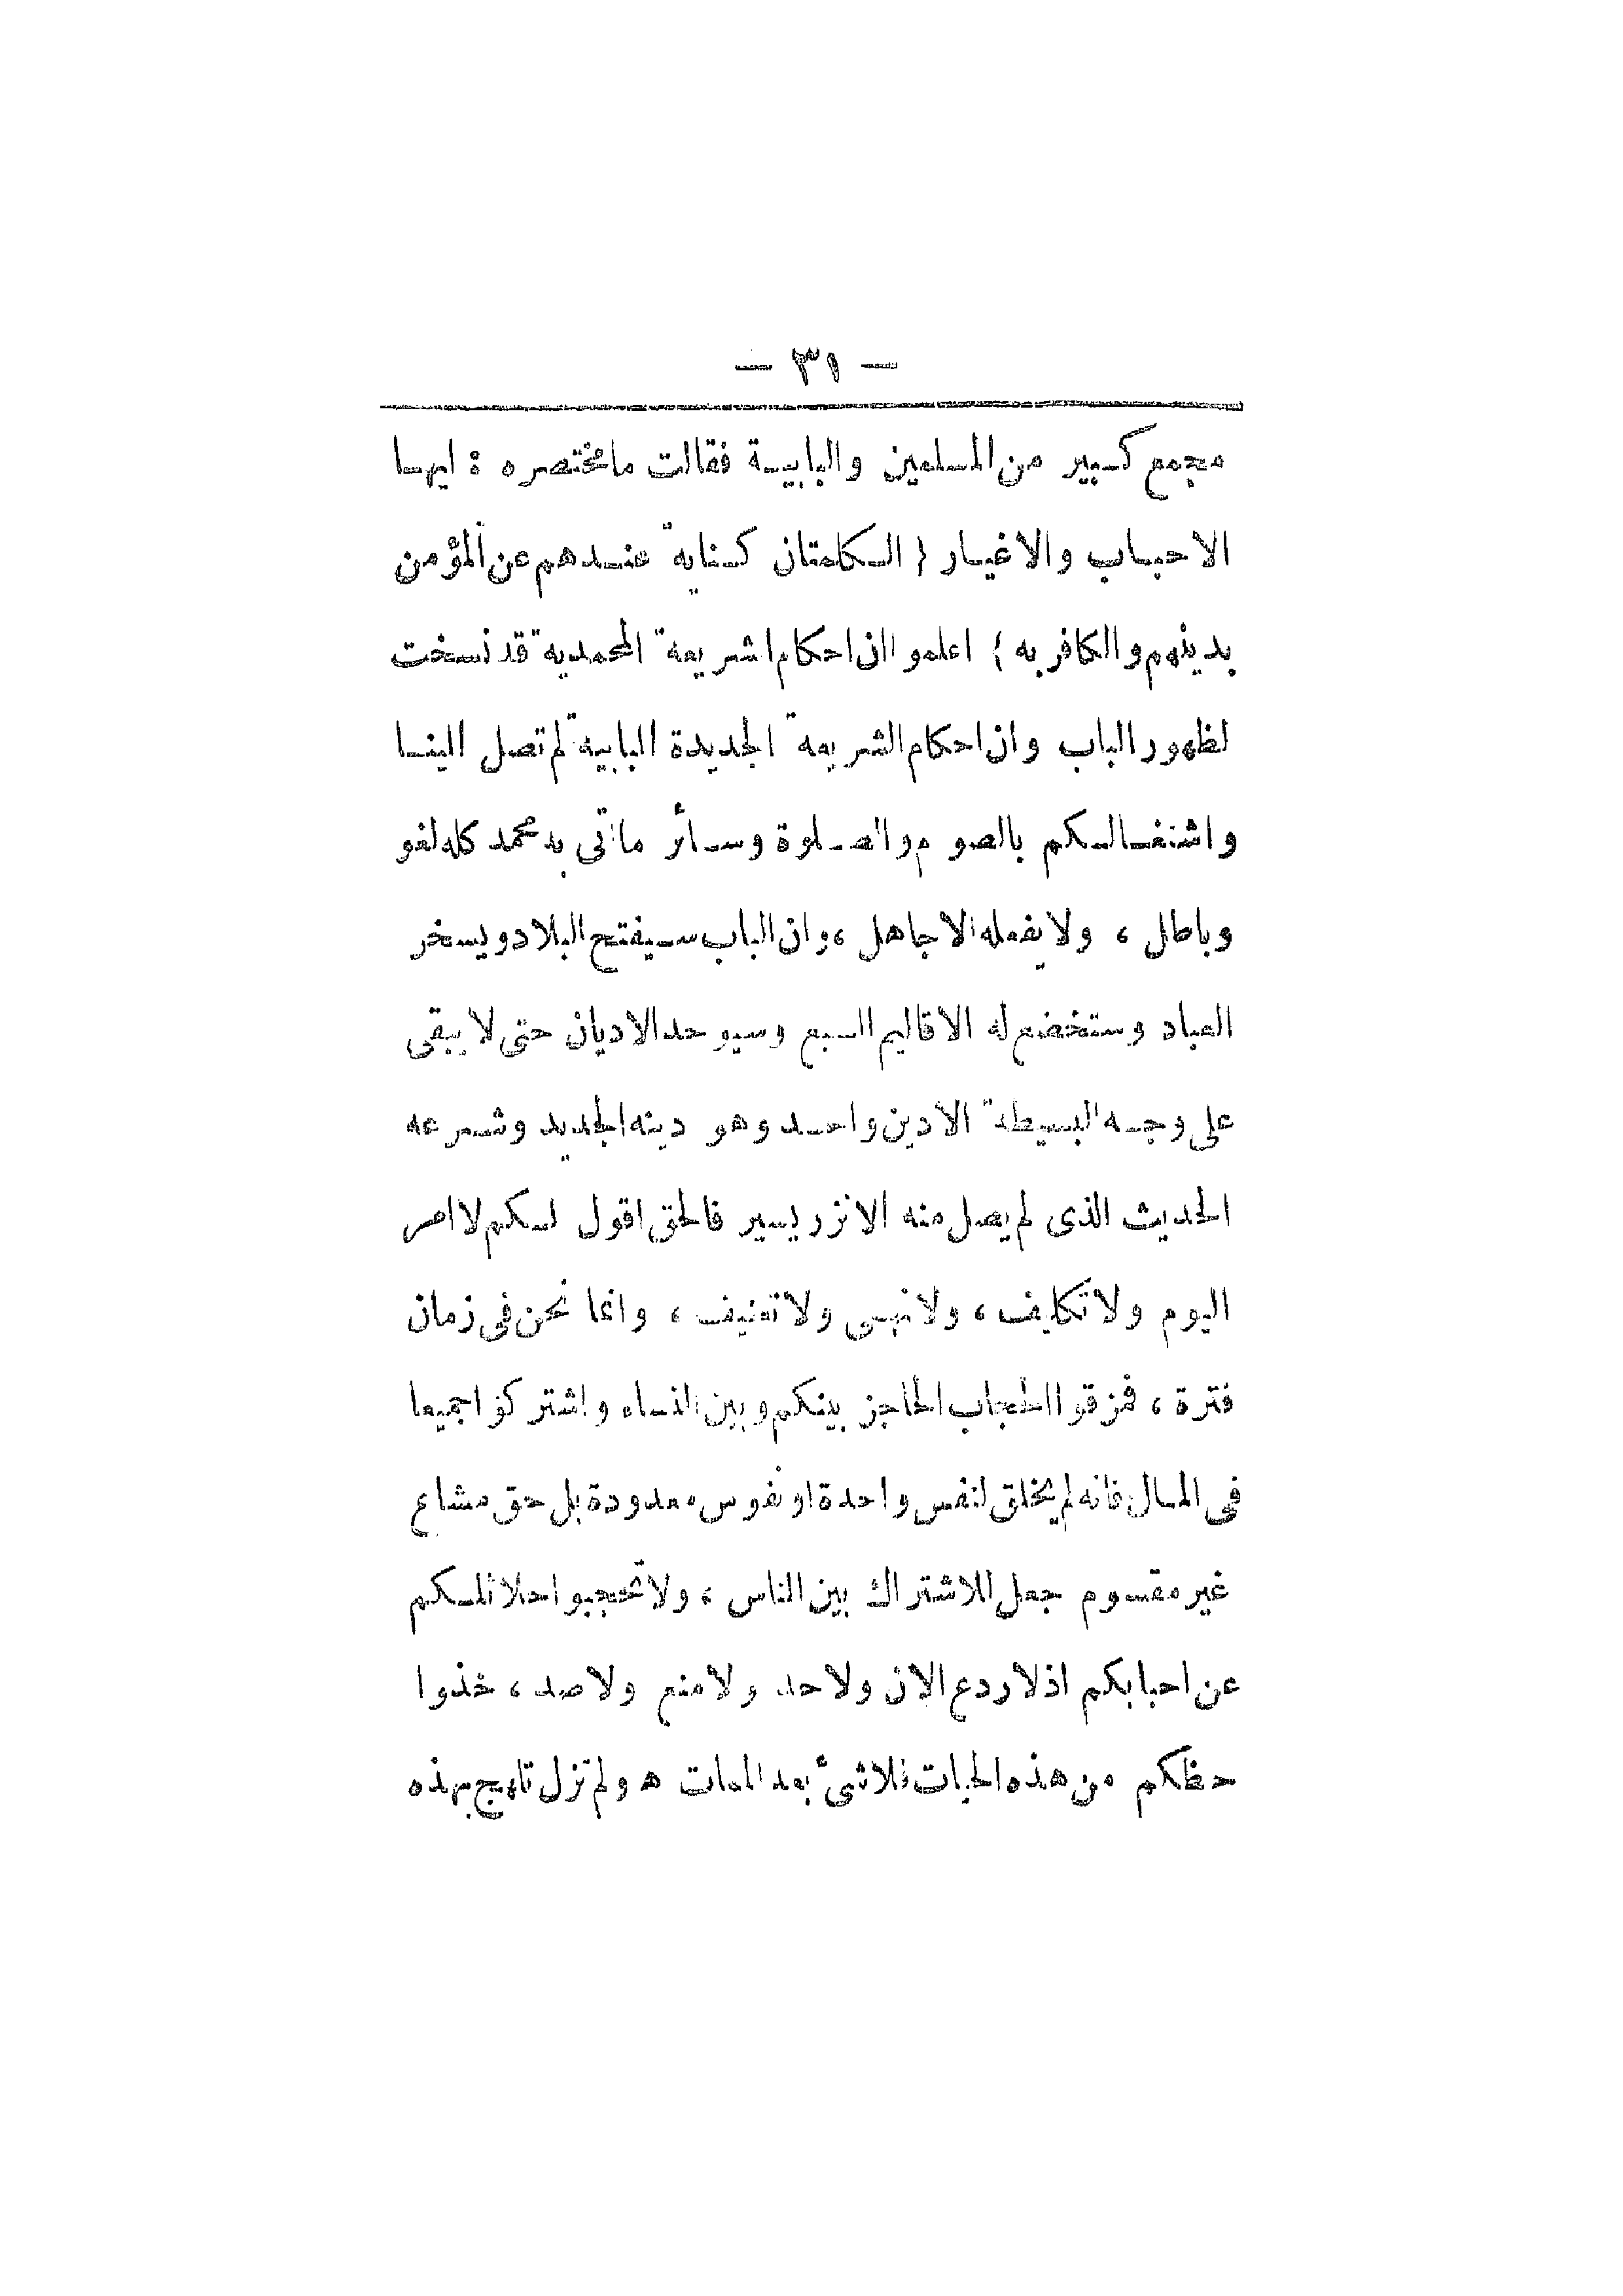 — ٣١ —
مجمع كبير من المسلمين والبابية فقالت ما مختصره : ايها
الاحباب والاغيار ( الكلمتان كناية عندهم عن المؤمن
بدينهم والكافر به ) اعلموا ان احكام اشريعة المحمدية قد نسخت
لظهور الباب وان احكام الشريعة الجديدة البابية لم تصل الينا
واشتغالكم بالصوم والصلوة وسائر ما اتى به محمد كله لغو
وباطل ، ولا يفعله الا جاهل ، وان الباب سيفتح البلاد ويسخر
العباد وستخضع له الاقاليم السبع وسيوحد الاديان حتى لا يبقى
على وجه البسيطة الا دين واحد وهو دينه الجديد وشرعه
الحديث الذى لم يصل منه الا نزر يسير فالحق اقول لكم لا امر
اليوم ولا تكليف ، ولا نهى ولا تعنيف ، وانما نحن فى زمان
فترة ، فمزقوا الحجاب الحاجز بينكم وبين النساء واشتركوا جميعا
فى المال فانه لم يخلق لنفس واحدة او نفوس معدودة بل حق مشاع
غير مقسوم جعل للاشتراك بين الناس ، ولا تحجبوا حلائلكم
عن احبابكم اذ لا ردع الان ولا حد ولا منع ولا صد ، خذوا
حظكم من هذه الحيات فلا شئ بعد الممات ه ولم تزل تلهج بهذه